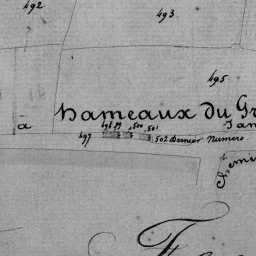 492
493
495
hameaux du Gr
à
497 498 499 500 501 502 dernier Numéro
Chemi